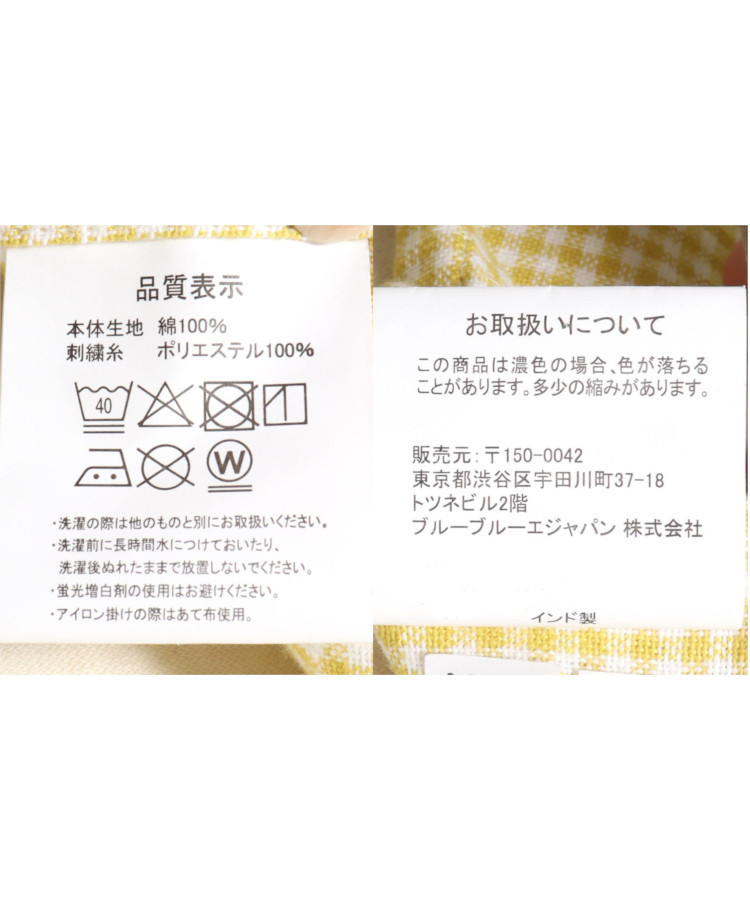 品質表示
本体生地 綿100%
刺繍糸 ポリエステル100%
40
W
・洗濯の際は他のものと別にお取扱いください。
・洗濯前に長時間水につけておいたり、
洗濯後ぬれたままで放置しないでください。
・蛍光増白剤の使用はお避けください。
・アイロン掛けの際はあて布使用。
お取扱いについて
この商品は濃色の場合、色が落ちる
ことがあります。多少の縮みがあります。
販売元:〒150-0042
東京都渋谷区宇田川町37-18
トツネビル2階
ブルーブルーエジャパン 株式会社
インド製